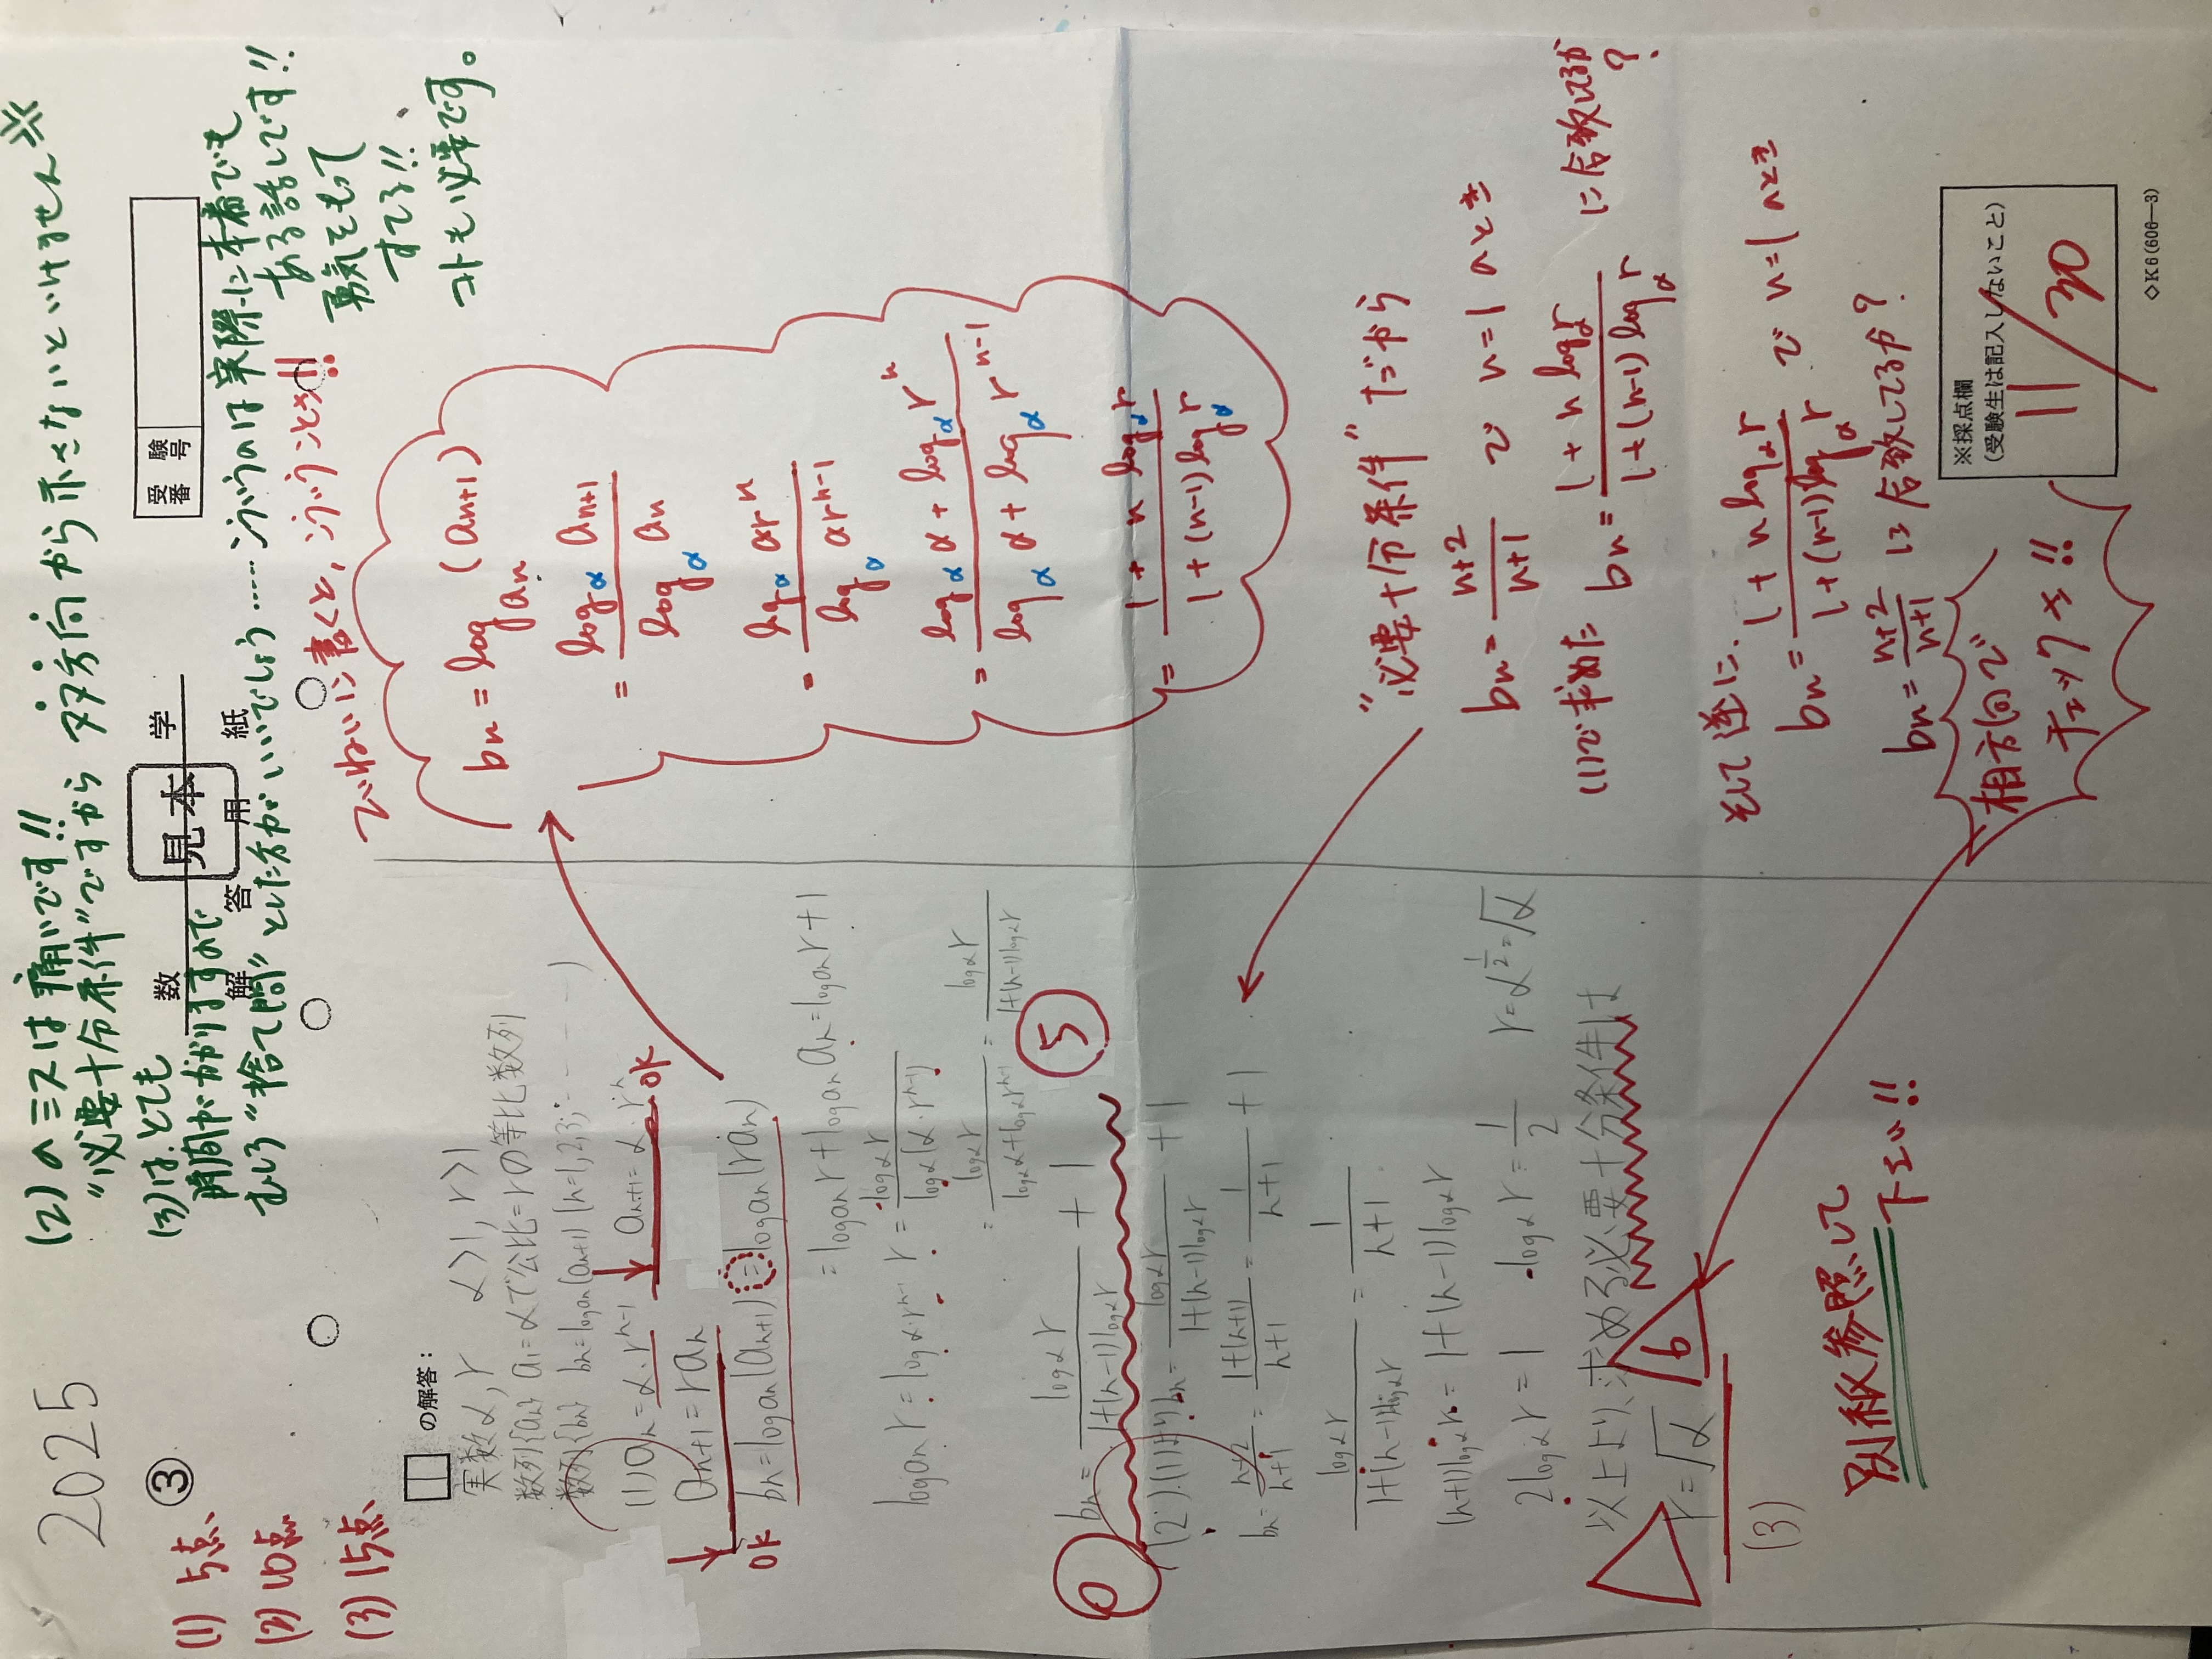 2025
(2)のミスは痛いです!!
"必要十分条件"ですから 双方向から示さないといけません※
(3)は、とても
時間がかかりますので
むしろ"捨て問"とした方がいいでしょう……こういうのは実際に本番でも
ある話です!!
勇気をもって
すてる!!
コトも必要です。
③
(1) 5点、
(2) 10点、
(3) 15点、
数学
見本
解答用紙
受験
番号
の解答:
実数α, r α>1, r>1
数列{an} a1=αで公比=rの等比数列
数列{bn} bn=logan(an+1) (n=1,2,3,……)
(1) an=α·r^(n-1) an+1=α·r^n
OK
an+1=ran
OK
bn=logan(an+1)=logan(ran)
=logan r+logan an=logan r+1
logan r=logα·r^(n-1) r=logα r/logα(α·r^(n-1))
=logα r/(logα α+logα r^(n-1))=logα r/(1+(n-1)logα r)
⑤
bn=logα r/(1+(n-1)logα r)+1
(2) (1)より bn=logα r/(1+(n-1)logα r)+1
bn=(n+2)/(n+1)=(1+(n+1))/(n+1)=1/(n+1)+1
logα r/(1+(n-1)logα r)=1/(n+1)
(n+1)logα r=1+(n-1)logα r
2logα r=1 logα r=1/2 r=α^(1/2)=√α
以上より、求める必要十分条件は
r=√α
6
(3)
別紙参照して
下さい!!
ていねいに書くと、こういうこと!!
bn=log an (an+1)
=logα an+1/logα an
=logα αr^n/logα αr^(n-1)
=(logα α+logα r^n)/(logα α+logα r^(n-1))
=(1+n logα r)/(1+(n-1)logα r)
"必要十分条件"だから
bn=(n+2)/(n+1) で n=1のとき
(1)で求めた bn=(1+n logα r)/(1+(n-1)logα r) に合致するか?
そして逆に、
bn=(1+n logα r)/(1+(n-1)logα r) で n=1のとき
bn=(n+2)/(n+1) に合致してるか?
相方向で
チェック☆!!
※採点欄
(受験生は記入しないこと)
11/30
◇K6(606—3)